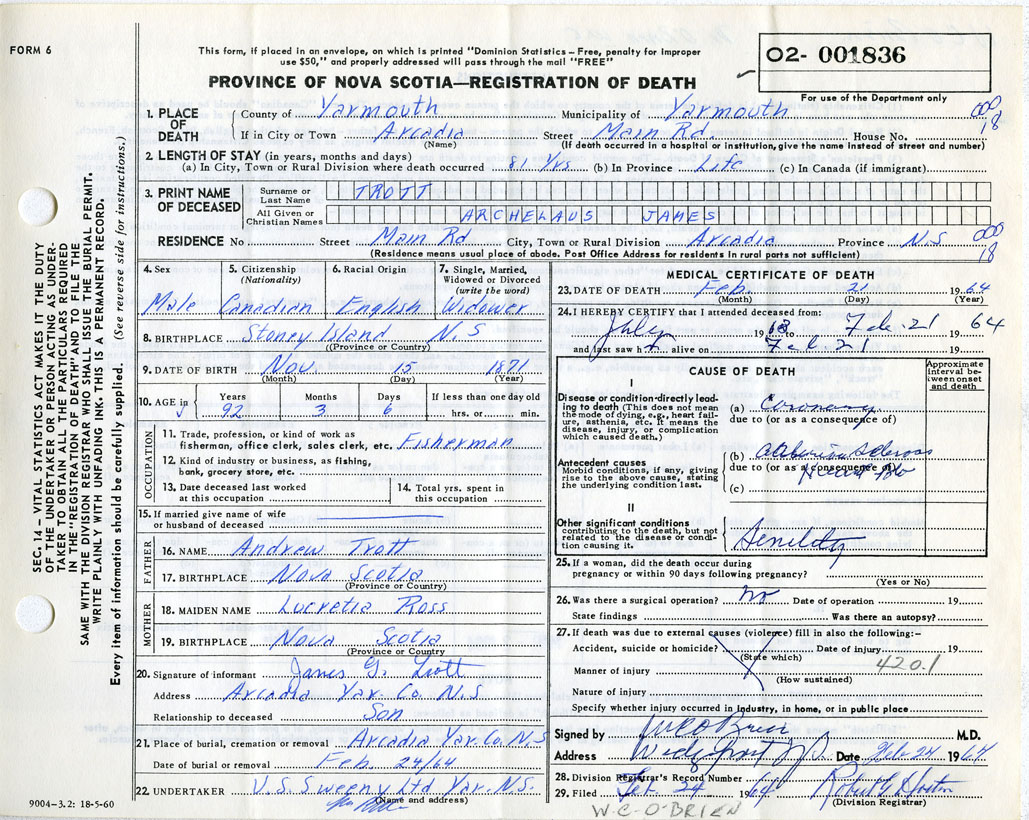 FORM 6
This form, if placed in an envelope, on which is printed "Dominion Statistics – Free, penalty for improper
use $50," and properly addressed will pass through the mail "FREE"
O2- 001836
PROVINCE OF NOVA SCOTIA—REGISTRATION OF DEATH
For use of the Department only
1. PLACE OF DEATH County of Yarmouth Municipality of Yarmouth 000
If in City or Town Arcadia Street Main Rd. House No. 18
(Name) (If death occurred in a hospital or institution, give the name instead of street and number)
2. LENGTH OF STAY (in years, months and days)
(a) In City, Town or Rural Division where death occurred 81 Yrs (b) In Province Life (c) In Canada (if immigrant)
3. PRINT NAME OF DECEASED Surname or Last Name TROTT
All Given or Christian Names ARCHELAUS JAMES
RESIDENCE No Street Main Rd City, Town or Rural Division Arcadia Province N.S 000 18
(Residence means usual place of abode. Post Office Address for residents in rural parts not sufficient)
4. Sex 5. Citizenship (Nationality) 6. Racial Origin 7. Single, Married, Widowed or Divorced (write the word)
Male Canadian English Widower
8. BIRTHPLACE Stoney Island N.S
(Province or Country)
9. DATE OF BIRTH Nov 15 1871
(Month) (Day) (Year)
10. AGE in Years Months Days If less than one day old
92 3 6 hrs. or min.
OCCUPATION
11. Trade, profession, or kind of work as
fisherman, office clerk, sales clerk, etc. Fisherman
12. Kind of industry or business, as fishing,
bank, grocery store, etc.
13. Date deceased last worked at this occupation 14. Total yrs. spent in this occupation
15. If married give name of wife
or husband of deceased
FATHER
16. NAME Andrew Trott
17. BIRTHPLACE Nova Scotia
(Province or Country)
MOTHER
18. MAIDEN NAME Lucretia Ross
19. BIRTHPLACE Nova Scotia
(Province or Country)
20. Signature of informant James G. Trott
Address Arcadia Yar. Co. N.S
Relationship to deceased Son
21. Place of burial, cremation or removal Arcadia Yar. Co. N.S
Date of burial or removal Feb. 24/64
22. UNDERTAKER V.S. Sweeny Ltd Yar. N.S.
(Name and address)
9004-3.2: 18-5-60
MEDICAL CERTIFICATE OF DEATH
23. DATE OF DEATH Feb. 21 1964
(Month) (Day) (Year)
24. I HEREBY CERTIFY that I attended deceased from:
July 1963 to Feb. 21 1964
and last saw h alive on Feb. 21 19
CAUSE OF DEATH
Approximate interval between onset and death
I
Disease or condition directly leading to death (This does not mean the mode of dying, e.g., heart failure, asthenia, etc. It means the disease, injury, or complication which caused death.)
(a) Coronary
due to (or as a consequence of)
Antecedent causes
Morbid conditions, if any, giving rise to the above cause, stating the underlying condition last.
(b)
due to (or as a consequence of)
(c)
II
Other significant conditions
contributing to the death, but not related to the disease or condition causing it.
Senility
25. If a woman, did the death occur during
pregnancy or within 90 days following pregnancy?
(Yes or No)
26. Was there a surgical operation? No Date of operation 19
State findings Was there an autopsy?
27. If death was due to external causes (violence) fill in also the following:–
Accident, suicide or homicide? Date of injury 19
(State which) 420.1
Manner of injury
(How sustained)
Nature of injury
Specify whether injury occurred in industry, in home, or in public place
Signed by W C O'Brien M.D.
Address Wedgeport N.S. Date Feb 24 1964
28. Division Registrar's Record Number
29. Filed Feb. 24 1964
(Division Registrar)
W.C-O'BRIEN
SEC. 14 – VITAL STATISTICS ACT MAKES IT THE DUTY
OF THE UNDERTAKER OR PERSON ACTING AS UNDER-
TAKER TO OBTAIN ALL THE PARTICULARS REQUIRED
IN THE "REGISTRATION OF DEATH" AND TO FILE THE
SAME WITH THE DIVISION REGISTRAR WHO SHALL ISSUE THE BURIAL PERMIT.
WRITE PLAINLY WITH UNFADING INK. THIS IS A PERMANENT RECORD.
Every item of information should be carefully supplied. (See reverse side for instructions.)